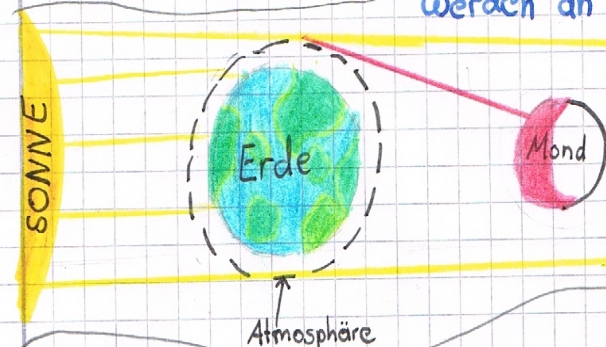 werden an
SONNE
Erde
Mond
Atmosphäre